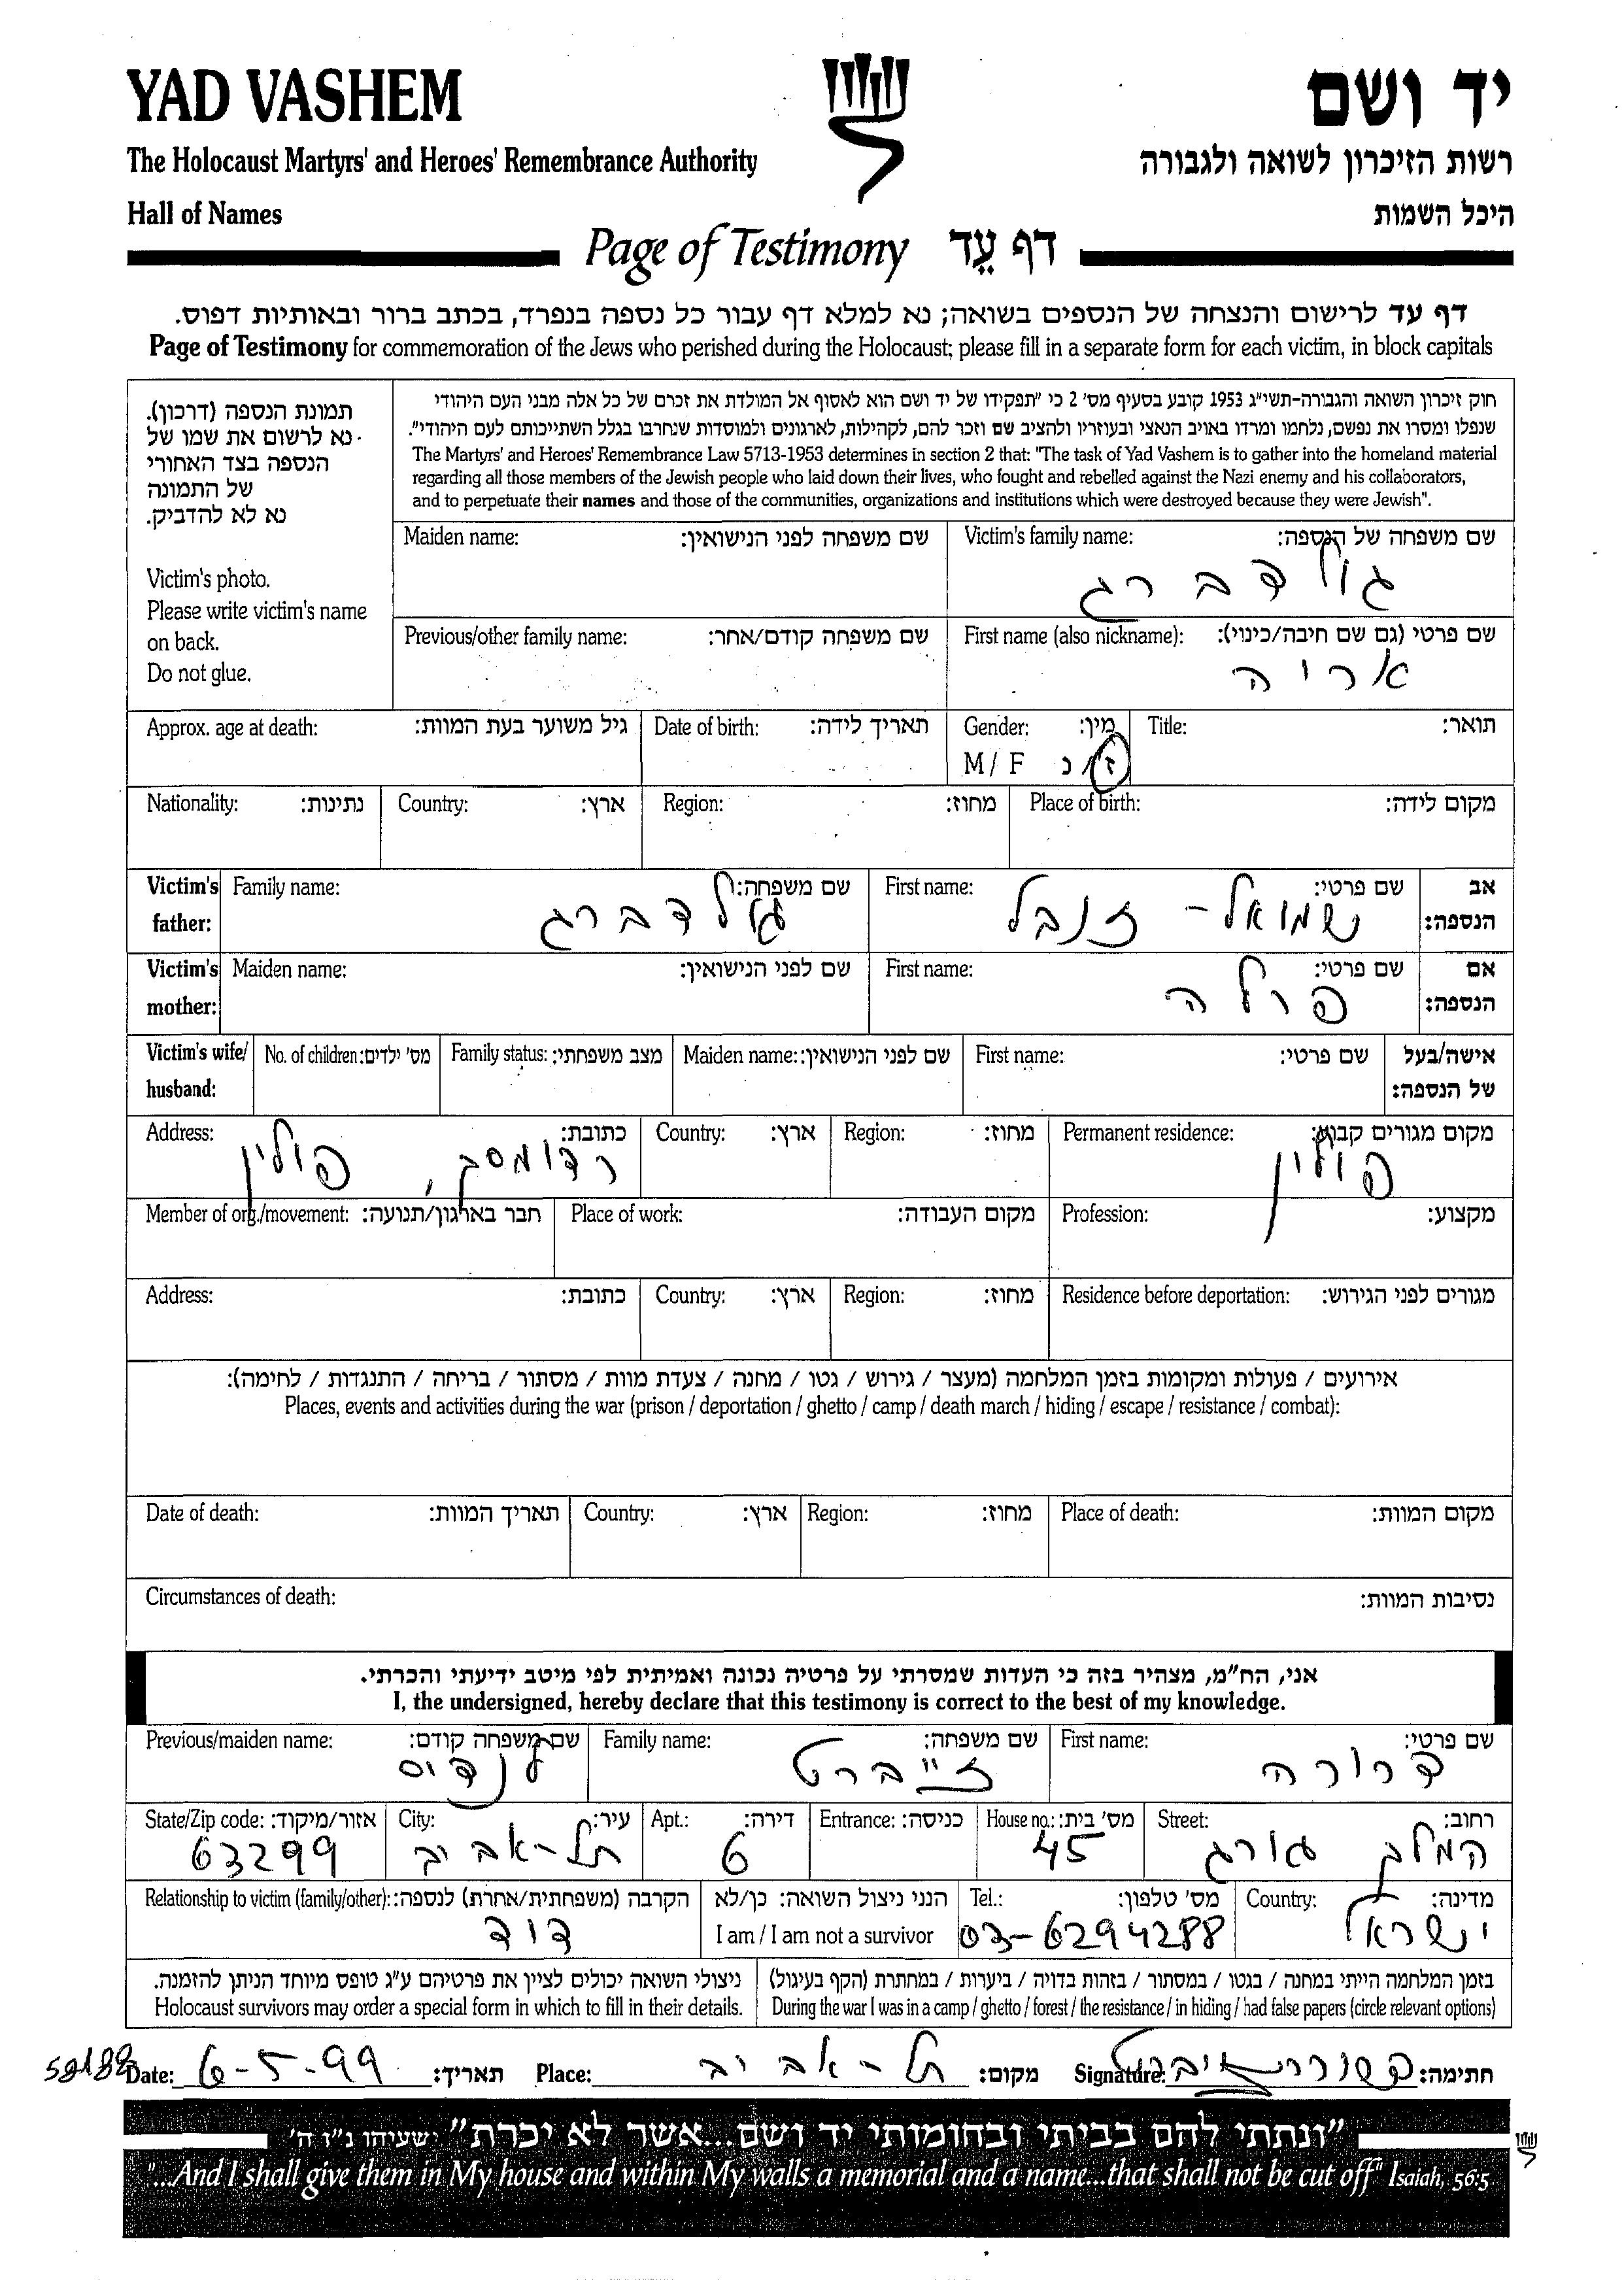 YAD VASHEM
יד ושם
The Holocaust Martyrs' and Heroes' Remembrance Authority
רשות הזיכרון לשואה ולגבורה
Hall of Names
היכל השמות
Page of Testimony דף עֵד
דף עד לרישום והנצחה של הנספים בשואה; נא למלא דף עבור כל נספה בנפרד, בכתב ברור ובאותיות דפוס.
Page of Testimony for commemoration of the Jews who perished during the Holocaust; please fill in a separate form for each victim, in block capitals
תמונת הנספה (דרכון).
נא לרשום את שמו של
הנספה בצד האחורי
של התמונה
נא לא להדביק.
Victim's photo.
Please write victim's name
on back.
Do not glue.
חוק זיכרון השואה והגבורה-תשי"ג 1953 קובע בסעיף מס' 2 כי "תפקידו של יד ושם הוא לאסוף אל המולדת את זכרם של כל אלה מבני העם היהודי
שנפלו ומסרו את נפשם, נלחמו ומרדו באויב הנאצי ובעוזריו ולהציב שם וזכר להם, לקהילות, לארגונים ולמוסדות שנחרבו בגלל השתייכותם לעם היהודי".
The Martyrs' and Heroes' Remembrance Law 5713-1953 determines in section 2 that: "The task of Yad Vashem is to gather into the homeland material
regarding all those members of the Jewish people who laid down their lives, who fought and rebelled against the Nazi enemy and his collaborators,
and to perpetuate their names and those of the communities, organizations and institutions which were destroyed because they were Jewish".
Maiden name: שם משפחה לפני הנישואין: Victim's family name: שם משפחה של הנספה:
גולדברג
Previous/other family name: שם משפחה קודם/אחר: First name (also nickname): שם פרטי (גם שם חיבה/כינוי):
אריה
Approx. age at death: גיל משוער בעת המוות: Date of birth: תאריך לידה: Gender: מין: Title: תואר:
M / F ז/נ
Nationality: נתינות: Country: ארץ: Region: מחוז: Place of birth: מקום לידה:
Victim's father: Family name: שם משפחה: First name: שם פרטי: אב הנספה:
גולדברג שמואל - זנבל
Victim's mother: Maiden name: שם לפני הנישואין: First name: שם פרטי: אם הנספה:
פרלה
Victim's wife/ husband: No. of children: מס' ילדים: Family status: מצב משפחתי: Maiden name: שם לפני הנישואין: First name: שם פרטי: אישה/בעל של הנספה:
Address: כתובת: Country: ארץ: Region: מחוז: Permanent residence: מקום מגורים קבוע:
רדומסק, פולין פולין
Member of org./movement: חבר בארגון/תנועה: Place of work: מקום העבודה: Profession: מקצוע:
Address: כתובת: Country: ארץ: Region: מחוז: Residence before deportation: מגורים לפני הגירוש:
אירועים / פעולות ומקומות בזמן המלחמה (מעצר / גירוש / גטו / מחנה / צעדת מוות / מסתור / בריחה / התנגדות / לחימה):
Places, events and activities during the war (prison / deportation / ghetto / camp / death march / hiding / escape / resistance / combat):
Date of death: תאריך המוות: Country: ארץ: Region: מחוז: Place of death: מקום המוות:
Circumstances of death: נסיבות המוות:
אני, הח"מ, מצהיר בזה כי העדות שמסרתי על פרטיה נכונה ואמיתית לפי מיטב ידיעתי והכרתי.
I, the undersigned, hereby declare that this testimony is correct to the best of my knowledge.
Previous/maiden name: שם משפחה קודם: Family name: שם משפחה: First name: שם פרטי:
לנדיס זייברט דרורה
State/Zip code: אזור/מיקוד: City: עיר: Apt.: דירה: Entrance: כניסה: House no.: מס' בית: Street: רחוב:
63299 תל-אביב 6 45 המלך גורג
Relationship to victim (family/other): הקרבה (משפחתית/אחרת) לנספה: הנני ניצול השואה: כן/לא Tel.: מס' טלפון: Country: מדינה:
דוד I am / I am not a survivor 03-6294288 ישראל
ניצולי השואה יכולים לציין את פרטיהם ע"ג טופס מיוחד הניתן להזמנה.
Holocaust survivors may order a special form in which to fill in their details.
בזמן המלחמה הייתי במחנה / בגטו / במסתור / בזהות בדויה / ביערות / במחתרת (הקף בעיגול)
During the war I was in a camp / ghetto / forest / the resistance / in hiding / had false papers (circle relevant options)
Date: 6-5-99 תאריך: Place: תל-אביב מקום: Signature: חתימה:
"ונתתי להם בביתי ובחומותי יד ושם...אשר לא יכרת" ישעיהו נ"ו ה'
"...And I shall give them in My house and within My walls a memorial and a name...that shall not be cut off" Isaiah, 56:5